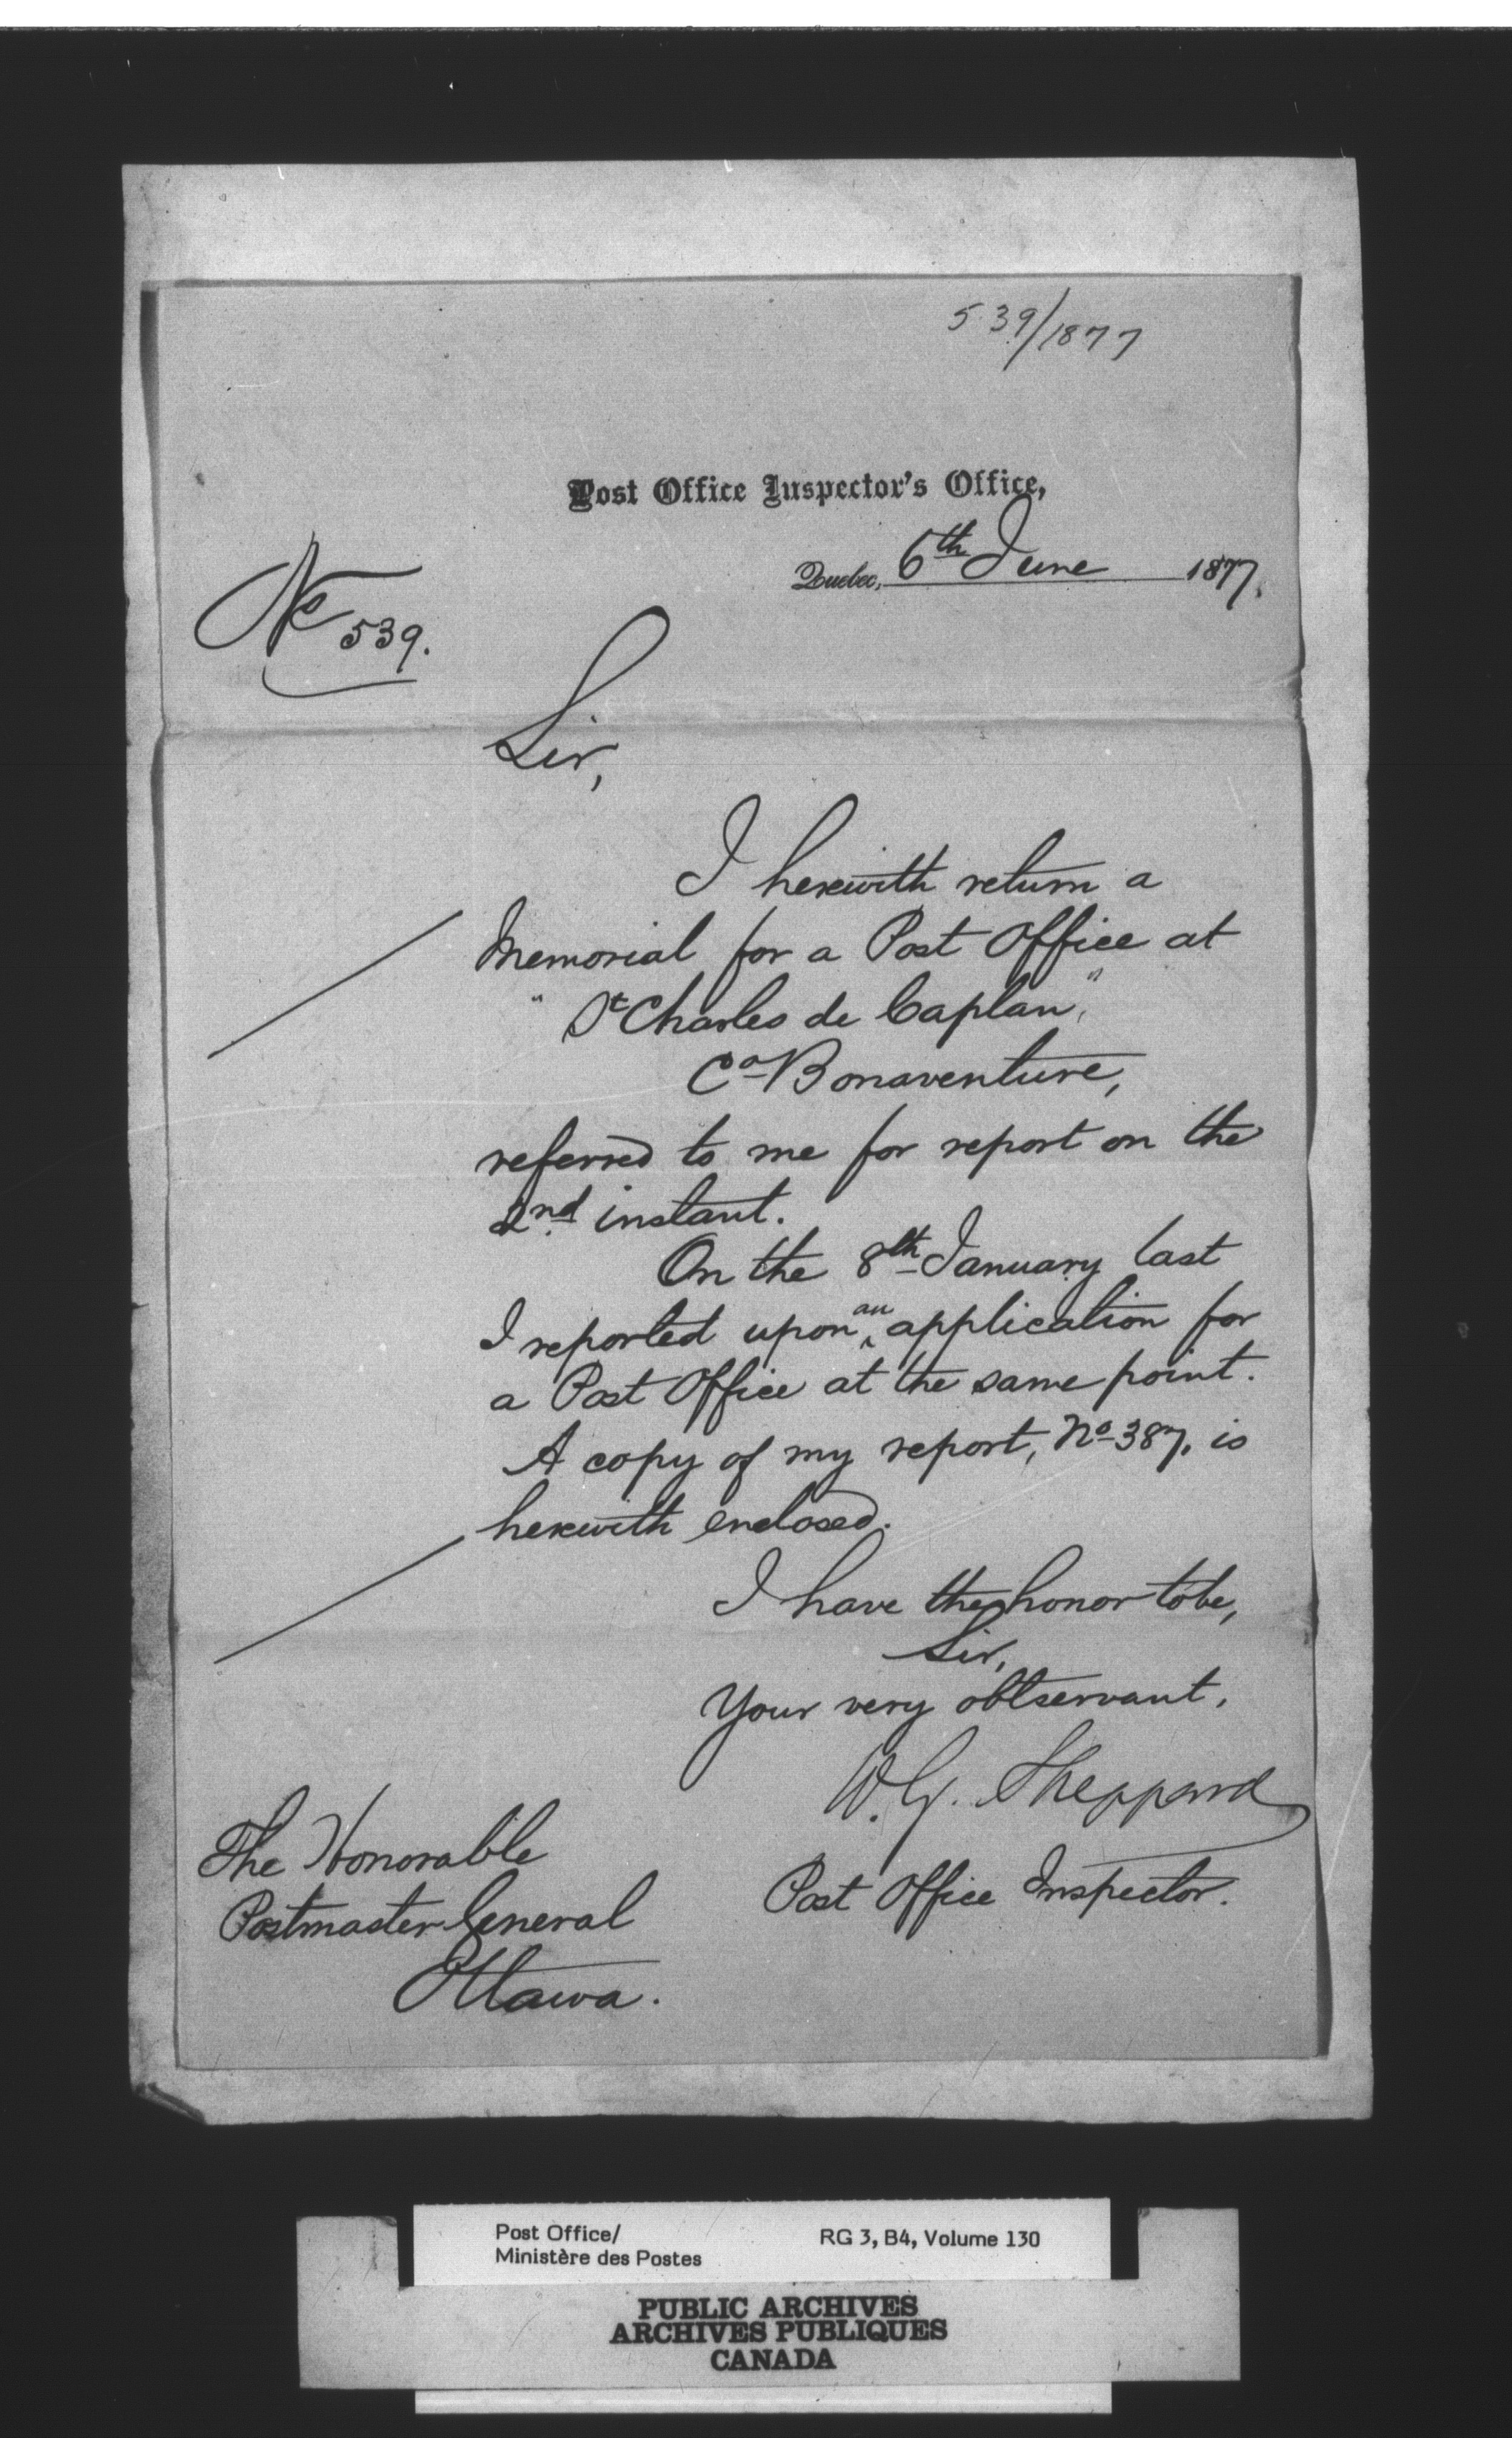 539/1877
Post Office Inspector's Office,
Quebec, 6th June 1877.
No 539.
Sir,
I herewith return a
Memorial for a Post Office at
"St Charles de Caplan,"
Co Bonaventure,
referred to me for report on the
2nd instant.
On the 8th January last
I reported upon an application for
a Post Office at the same point.
A copy of my report, No 387, is
herewith enclosed.
I have the honor to be,
Sir,
Your very obt servant,
W. G. Sheppard
Post Office Inspector.
The Honorable
Postmaster General
Ottawa.
Post Office/
Ministère des Postes
RG 3, B4, Volume 130
PUBLIC ARCHIVES
ARCHIVES PUBLIQUES
CANADA